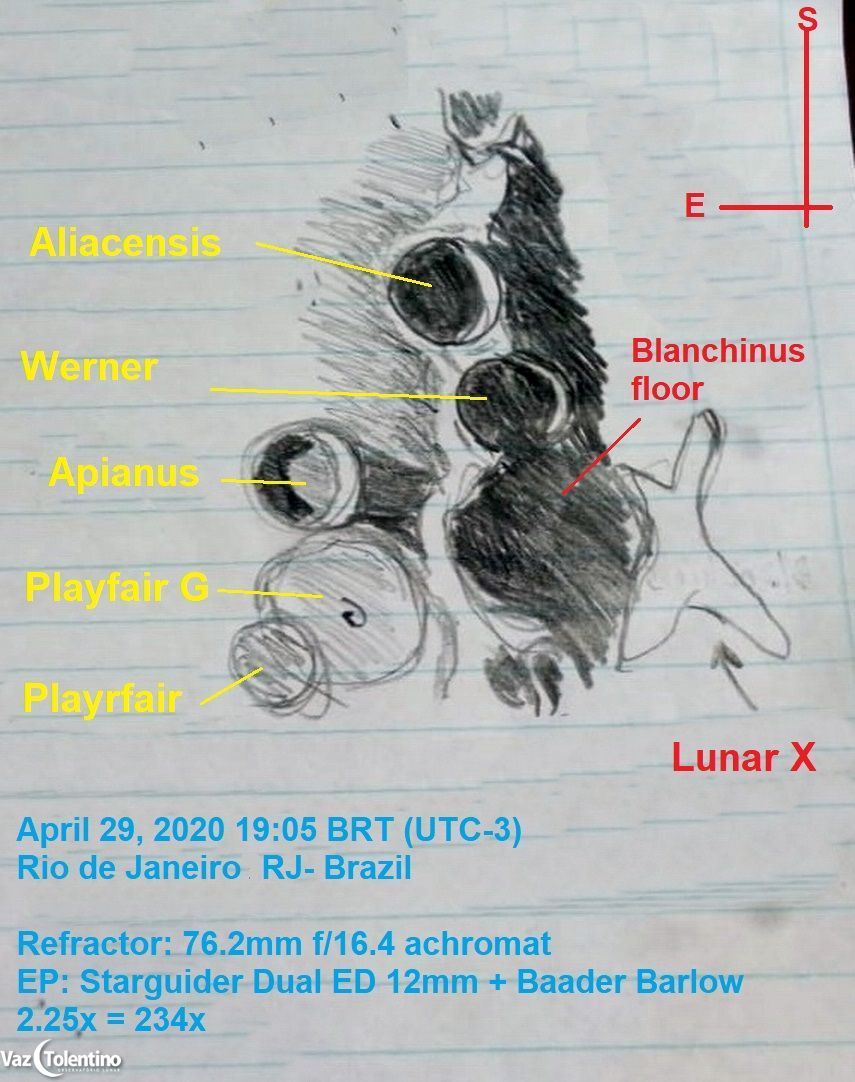 S
E
Aliacensis
Werner
Blanchinus
floor
Apianus
Playfair G
Playrfair
Lunar X
April 29, 2020 19:05 BRT (UTC-3)
Rio de Janeiro RJ- Brazil
Refractor: 76.2mm f/16.4 achromat
EP: Starguider Dual ED 12mm + Baader Barlow
2.25x = 234x
Vaz Tolentino
OBSERVATÓRIO LUNAR